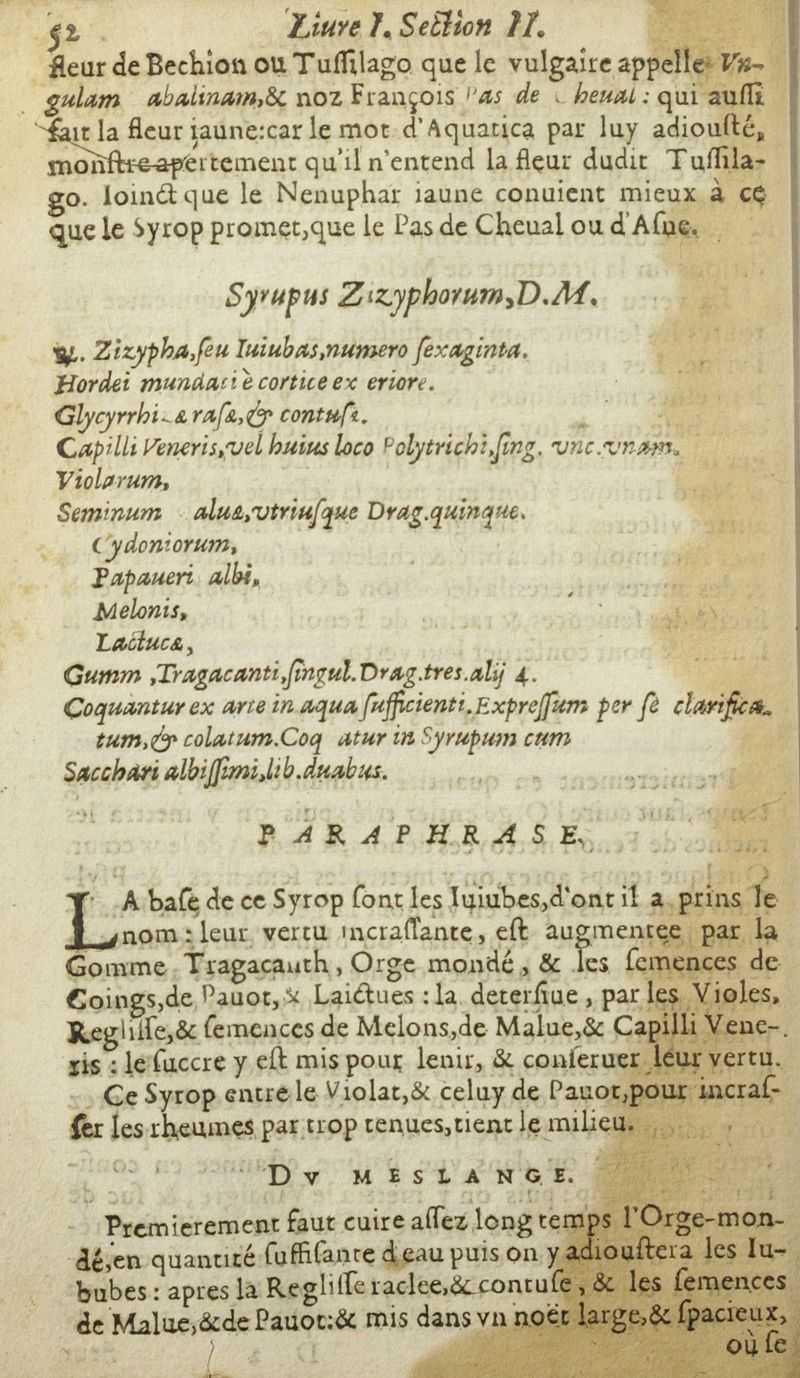 52 Liure I. Section II.
fleur de Bechion ou Tuſſilago que le vulgaire appelle Vn-
gulam abalinam,& noz François Pas de Cheual : qui auſſi
fait la fleur iaune:car le mot d'Aquatica par luy adiouſté,
monſtre apertement qu'il n'entend la fleur dudit Tuſſila-
go. Ioinct que le Nenuphar iaune conuient mieux à ce
que le Syrop promet,que le Pas de Cheual ou d'Aſne.
Syrupus Zizyphorum,D.M.
℞. Zizypha,ſeu Iuiubas,numero ſexaginta.
Hordei mundati è cortice exteriore.
Glycyrrhizæ raſæ,& contuſæ.
Capilli Veneris,vel huius loco Polytrichi,ſing. vnc.vnam.
Violarum,
Seminum maluæ,vtriuſque Drag.quinque.
Cydoniorum,
Papaueri albi,
Melonis,
Lactucæ,
Gumm ,Tragacanti,ſingul.Drag.tres.alij 4.
Coquantur ex arte in aqua ſufficienti.Expreſſum per ſe clarifica-
tum,& colatum.Coq atur in Syrupum cum
Sacchari albiſſimi,lib.duabus.
PARAPHRASE.
LA baſe de ce Syrop ſont les Iuiubes,d'ont il a prins le
nom : leur vertu incraſſante, eſt augmentee par la
Gomme Tragacanth, Orge mondé, & les ſemences de
Coings,de Pauot, & Laictues : la deterſiue , par les Violes,
Regliſſe,& ſemences de Melons,de Malue,& Capilli Vene-
ris : le ſuccre y eſt mis pour lenir, & conſeruer leur vertu.
Ce Syrop entre le Violat,& celuy de Pauot,pour incraſ-
ſer les rheumes par trop tenues,tient le milieu.
DV MESLANGE.
Premierement faut cuire aſſez long temps l'Orge-mon-
dé,en quantité ſuffiſante d eau puis on y adiouſtera les Iu-
bubes : apres la Regliſſe raclee,& contuſe , & les ſemences
de Malue,&de Pauot:& mis dans vn noët large,& ſpacieux,
où ſe